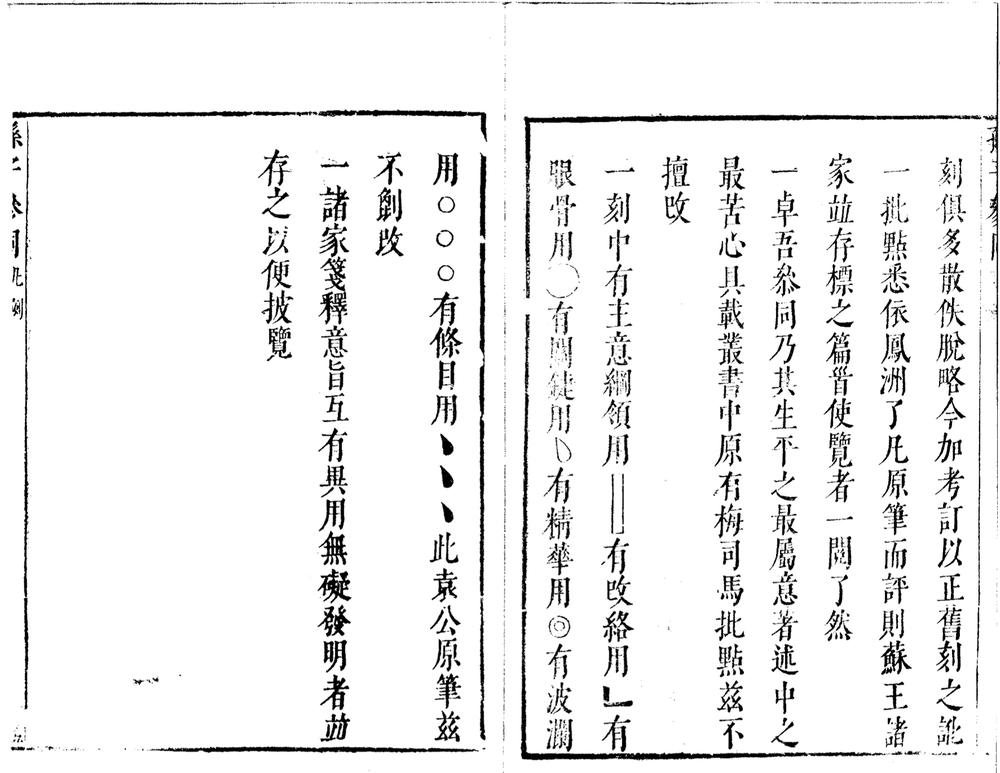 刻俱多散佚脫略今加考訂以正舊刻之訛
一批點悉依鳳洲了凡原筆而評則蘇王諸
家並存標之篇首使覽者一閱了然
一卓吾叅同乃其生平之最屬意著述中之
最苦心具載叢書中原有梅司馬批點茲不
擅改
一刻中有主意綱領用||有改絡用乚有
眼骨用○有關鍵用﹆有精華用◎有波瀾
用○○○有條目用﹅﹅﹅此袁公原筆茲
不創改
一諸家箋釋意旨互有異用無礙發明者並
存之以便披覽
孫子叅同凡例